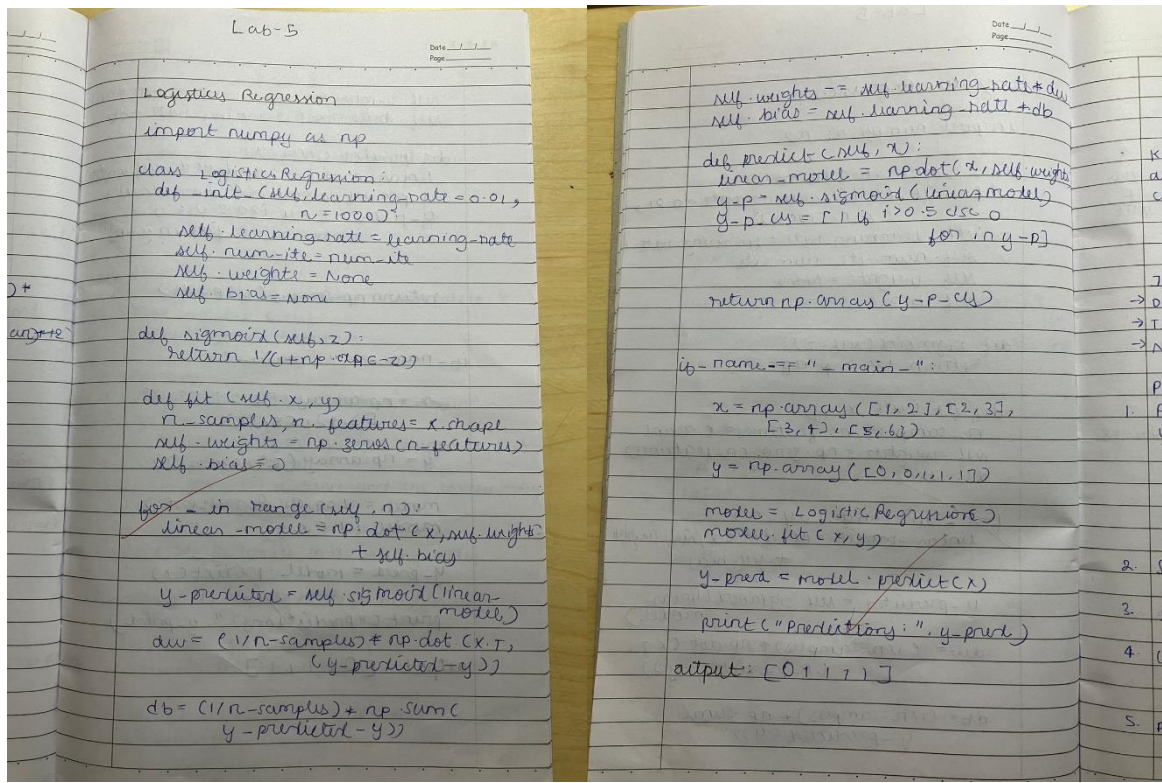 Lab-5
Date
Page
Logistics Regression
import numpy as np
class LogisticsRegression:
def _init_(self,learning-rate=0.01,
n=1000):
self.learning-rate=learning-rate
self.num-ite=num-ite
self.weights=None
self.bias=None
def sigmoid(self,z):
return 1/(1+np.exp(-z))
def fit(self.x,y)
n_samples,n_features=x.shape
self.weights=np.zeros(n_features)
self.bias=0
for _ in range(self.n):
linear_model=np.dot(x,self.weights
+ self.bias
y-predicted=self.sigmoid(linear-
model)
dw=(1/n-samples)*np.dot(X.T,
(y-predicted-y))
db=(1/n-samples)*np.sum(
y-predicted-y))
)*
Date
Page
self.weights -= self.learning_rate*dw
self.bias = self.learning_rate*db
def predict(self,x):
linear_model = np.dot(x,self.weights
y-p=self.sigmoid(linear model)
y-p-cls = [1 if i>0.5 else 0
for in y-p]
return np.array(y-p-cls)
if_name_== "_main_":
x=np.array([1,2],[2,3],
[3,4],[5,6])
y=np.array([0,0,1,1,1])
model=LogisticRegression()
model.fit(x,y)
y-pred=model.predict(x)
print("Predictions:",y-pred)
output:[0 1 1 1 1]
1.
2.
3.
4.
5.